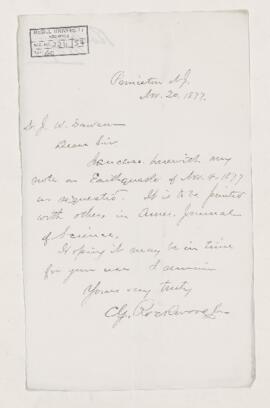 McGILL UNIVERSITY
ARCHIVES
Princeton N.J.
Nov. 20, 1877.
Dr J. W. Dawson
Dear Sir
I enclose herewith my
note on Earthquake of Nov. 4, 1877
as requested. It is to be printed
with others in Amer. Journal
of Science.
Hoping it may be in time
for your use I remain
Yours very truly
C. G. Rockwood Jr